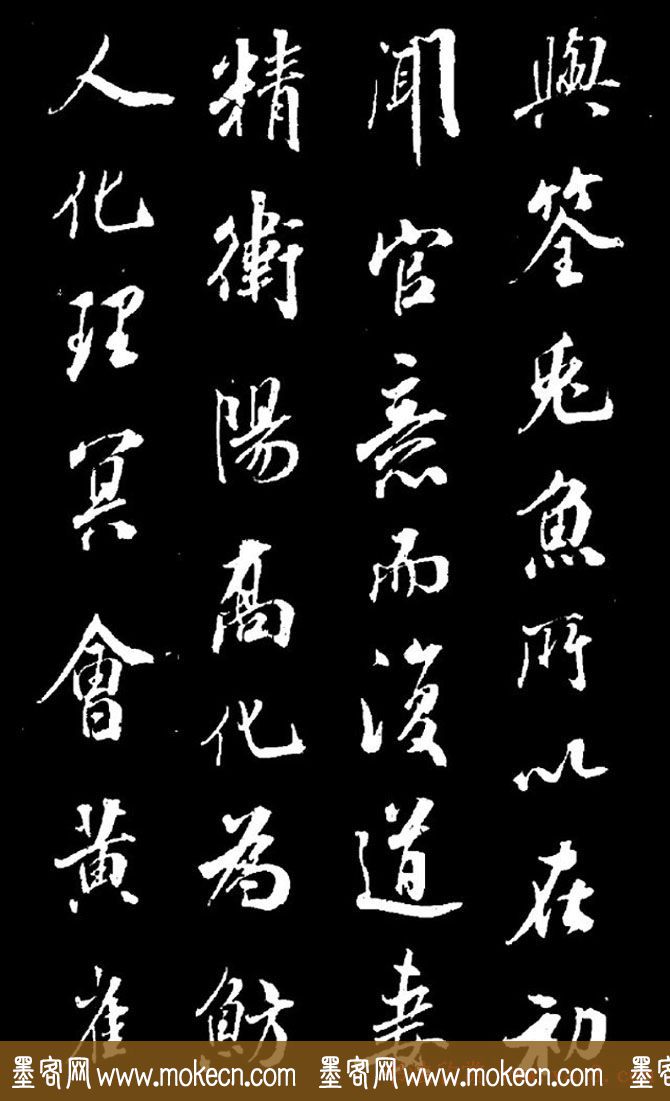 與筌兎魚所以在初
聞官意而復道妻
精衛陽高化為魴
人化理冥會黄雀
墨客网 www.mokecn.com 墨客网 www.mokecn.com 墨客